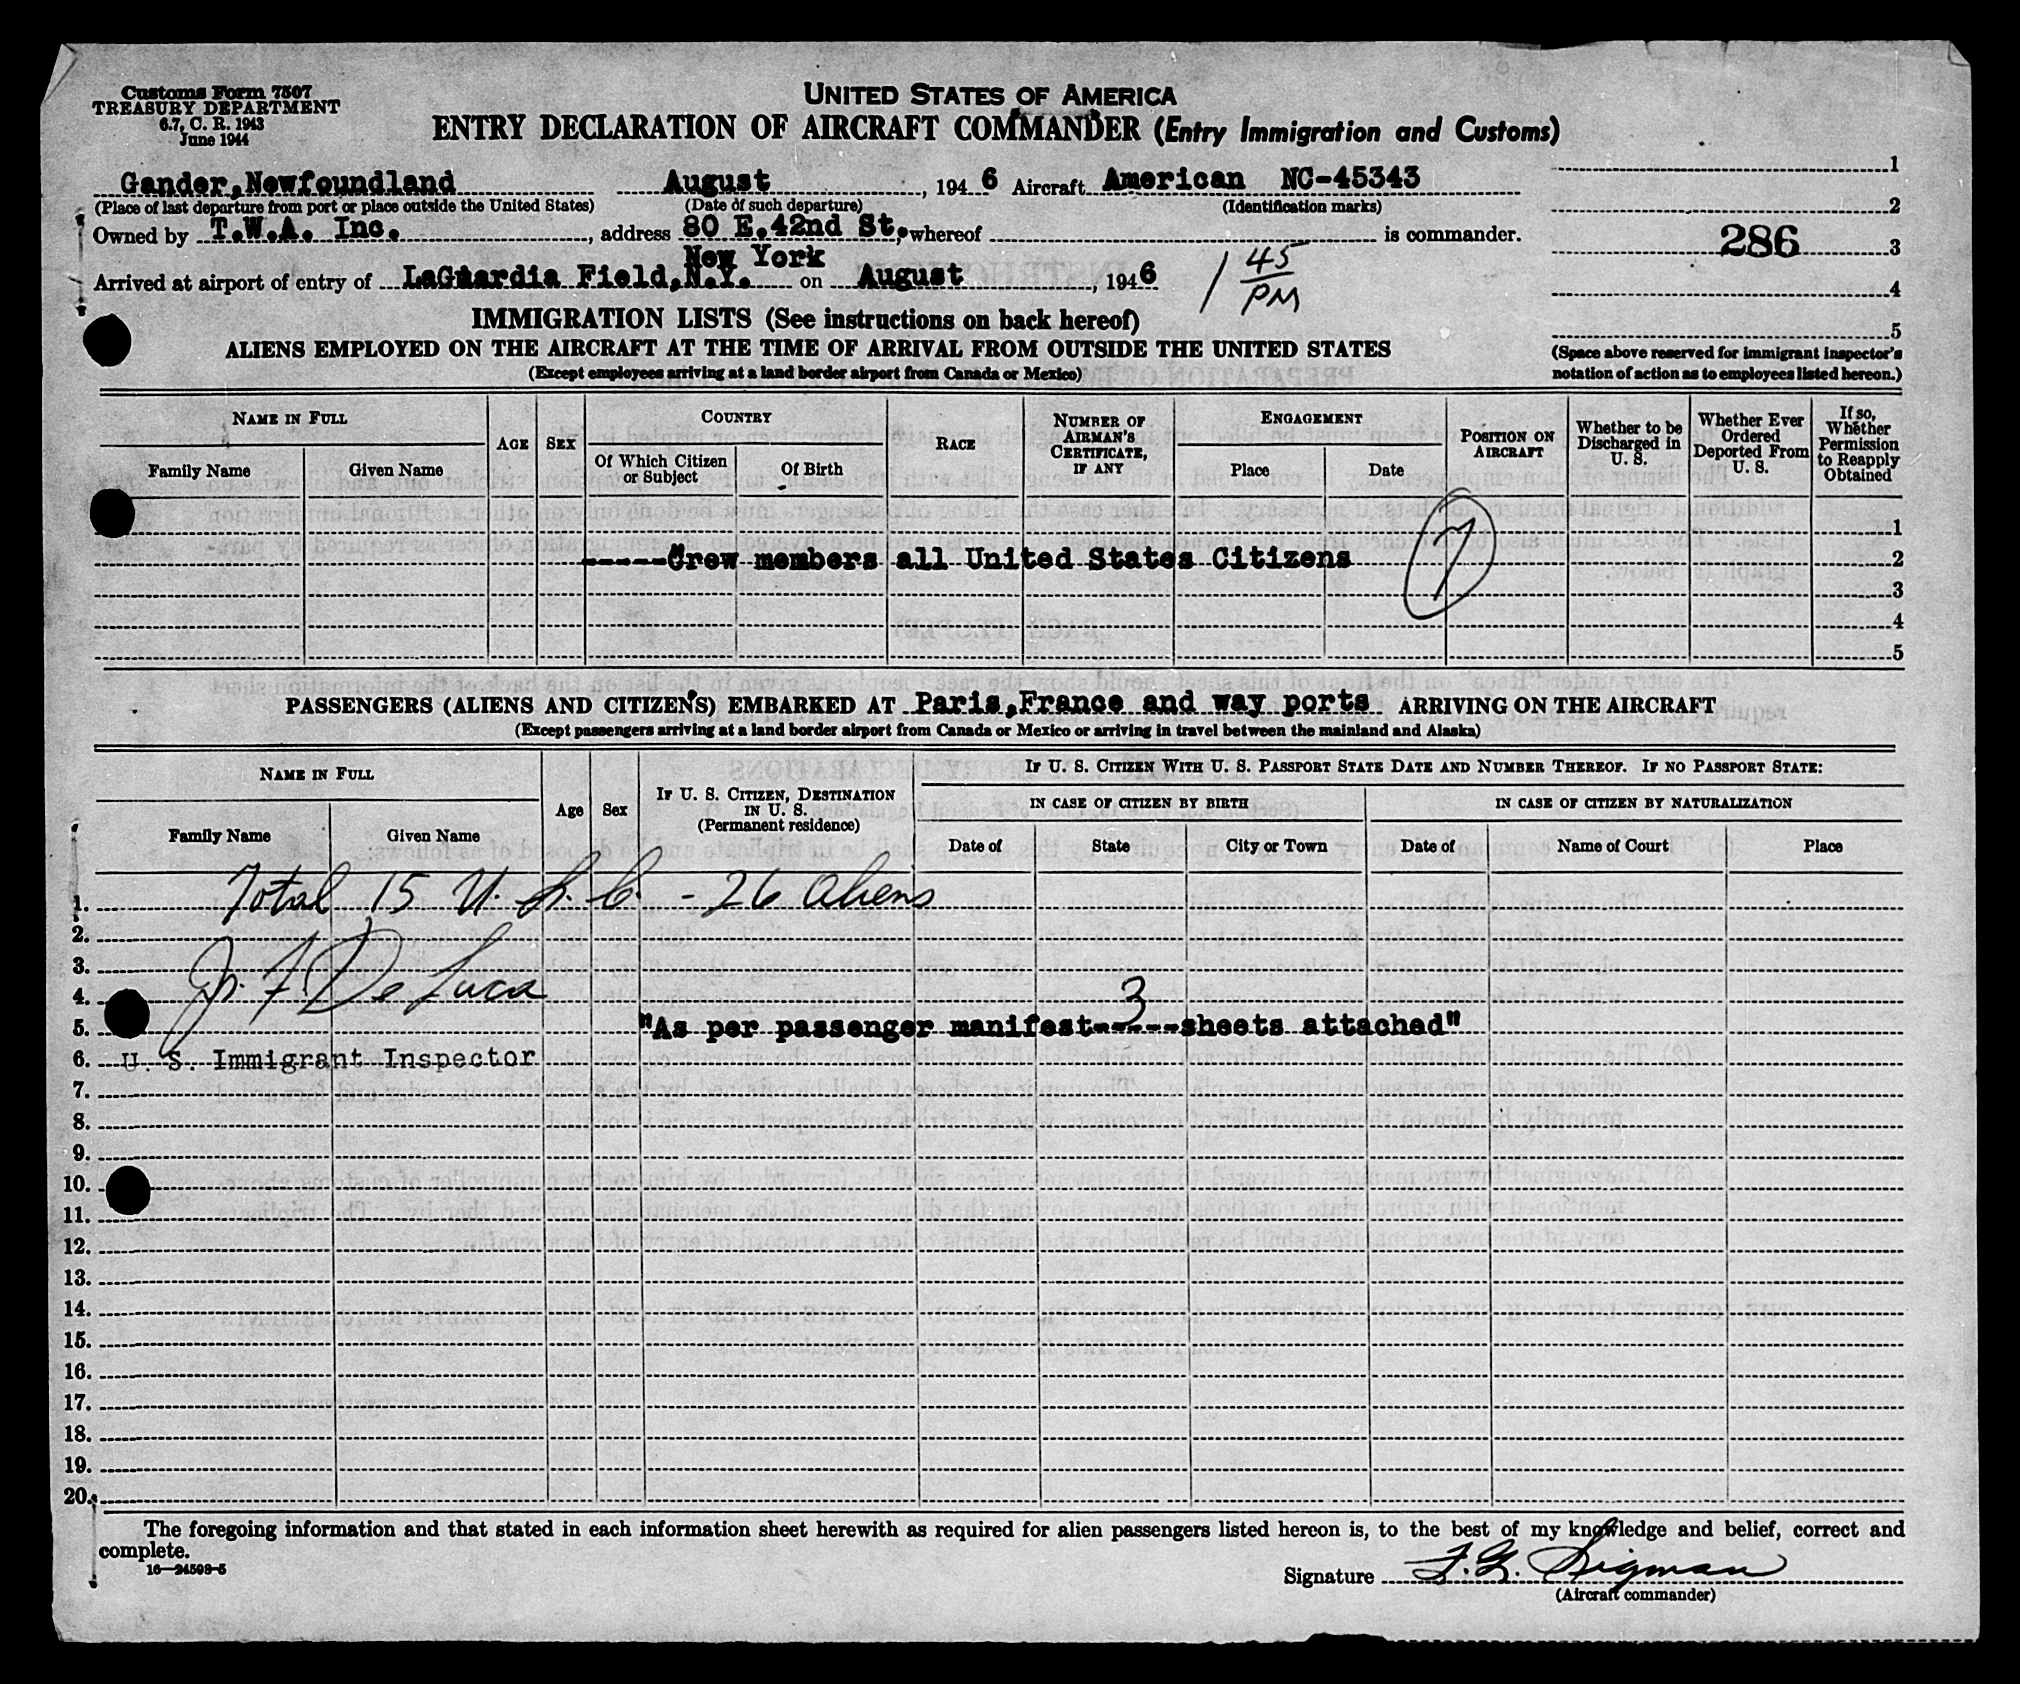 Customs Form 7507
TREASURY DEPARTMENT
6.7, C. R. 1943
June 1944
UNITED STATES OF AMERICA
ENTRY DECLARATION OF AIRCRAFT COMMANDER (Entry Immigration and Customs)
Gander, Newfoundland August , 1946 Aircraft American NC-45343
(Place of last departure from port or place outside the United States) (Date of such departure) (Identification marks)
Owned by T.W.A. Inc. , address 80 E.42nd St., whereof is commander.
New York
Arrived at airport of entry of LaGuardia Field, N.Y. on August , 1946 1 45 PM
1
2
286 3
4
5
(Space above reserved for immigrant inspector's
notation of action as to employees listed hereon.)
IMMIGRATION LISTS (See instructions on back hereof)
ALIENS EMPLOYED ON THE AIRCRAFT AT THE TIME OF ARRIVAL FROM OUTSIDE THE UNITED STATES
(Except employees arriving at a land border airport from Canada or Mexico)
NAME IN FULL
Family Name Given Name
AGE
SEX
COUNTRY
Of Which Citizen or Subject
Of Birth
RACE
NUMBER OF AIRMAN'S CERTIFICATE, IF ANY
ENGAGEMENT
Place Date
POSITION ON AIRCRAFT
Whether to be Discharged in U. S.
Whether Ever Ordered Deported From U. S.
If so, Whether Permission to Reapply Obtained
1
-----Crew members all United States Citizens 7 2
3
4
5
PASSENGERS (ALIENS AND CITIZENS) EMBARKED AT Paris, France and way ports ARRIVING ON THE AIRCRAFT
(Except passengers arriving at a land border airport from Canada or Mexico or arriving in travel between the mainland and Alaska)
NAME IN FULL
Family Name Given Name
Age
Sex
IF U. S. CITIZEN, DESTINATION IN U. S. (Permanent residence)
IF U. S. CITIZEN WITH U. S. PASSPORT STATE DATE AND NUMBER THEREOF. IF NO PASSPORT STATE:
IN CASE OF CITIZEN BY BIRTH
IN CASE OF CITIZEN BY NATURALIZATION
Date of State City or Town Date of Name of Court Place
1. Total 15 U. S. C. - 26 Aliens
2.
3.
4. Jr. F. De Luca
5. "As per passenger manifest--3---sheets attached"
6. U. S. Immigrant Inspector
7.
8.
9.
10.
11.
12.
13.
14.
15.
16.
17.
18.
19.
20.
The foregoing information and that stated in each information sheet herewith as required for alien passengers listed hereon is, to the best of my knowledge and belief, correct and
complete.
16—24598-5
Signature F. G. Sigman
(Aircraft commander)